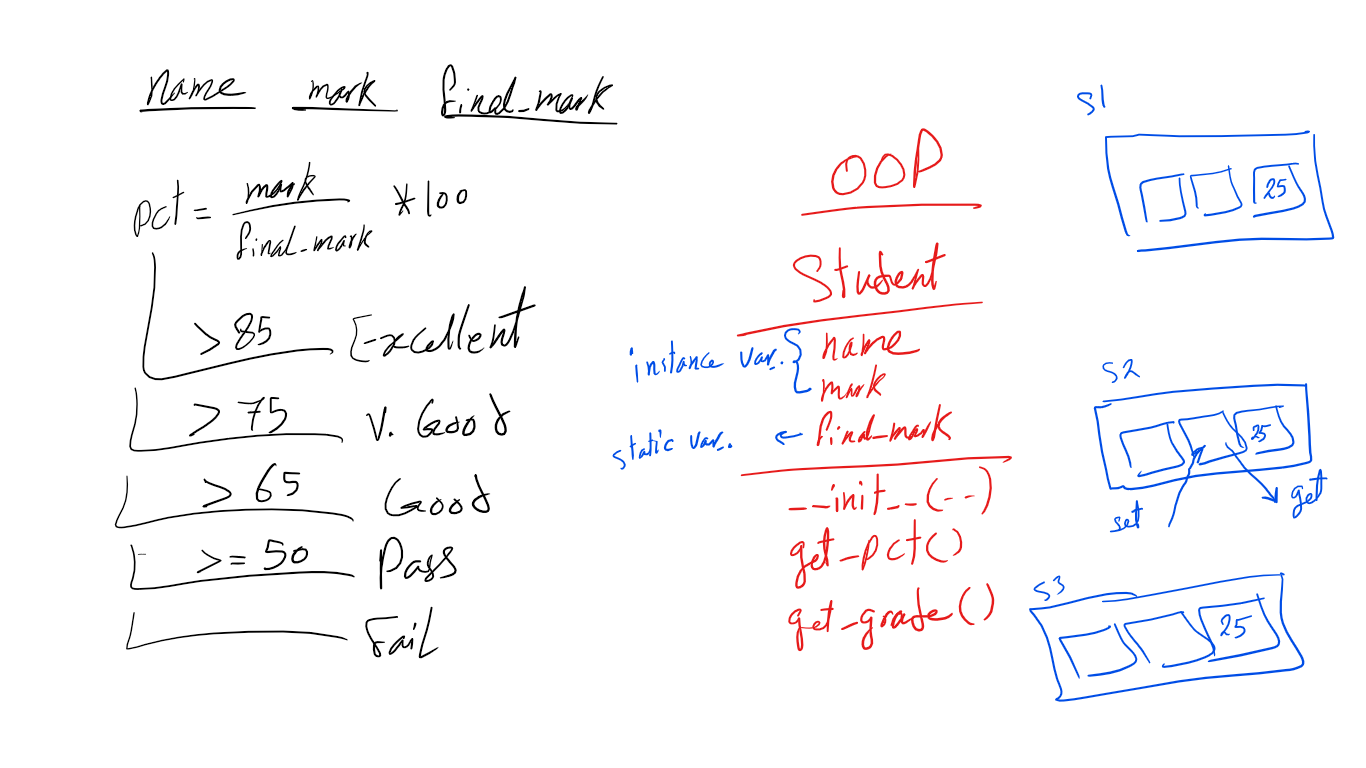 name mark final_mark
pct = mark / final_mark * 100
> 85 Excellent
> 75 V. Good
> 65 Good
>= 50 Pass
Fail
OOP
Student
instance var. { name
mark
static var. ← final_mark
--init--(--)
get_pct()
get_grade()
S1
25
S2
25
set
get
S3
25